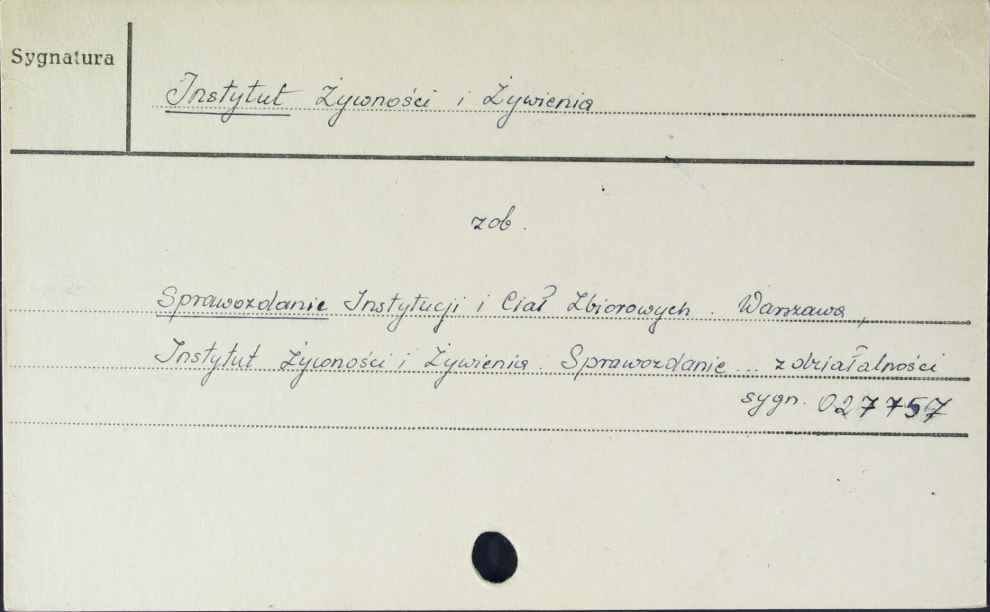 Sygnatura
Instytut Żywności i Żywienia
zob.
Sprawozdanie Instytucji i Ciał Zbiorowych. Warszawa,
Instytut Żywności i Żywienia. Sprawozdanie... z działalności
sygn. 027757